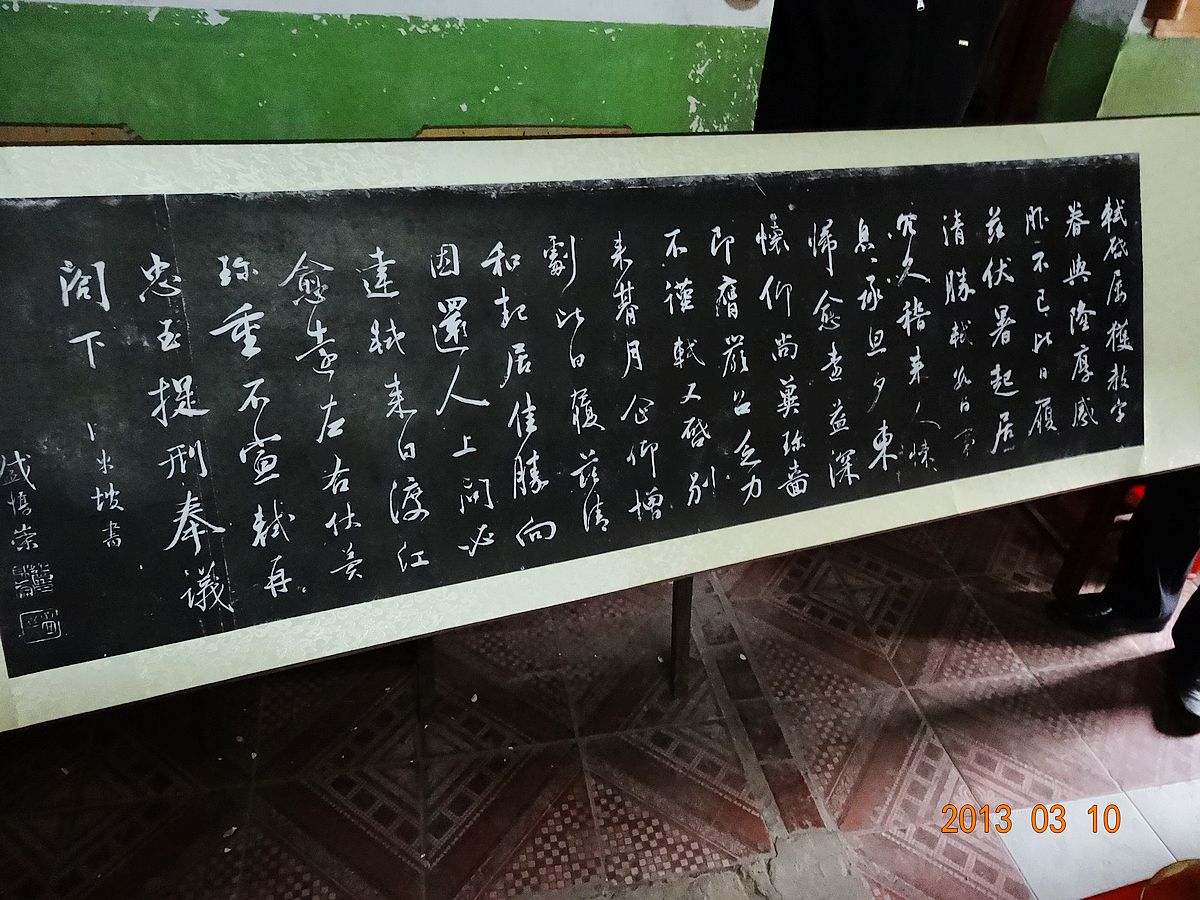 軾啟屢獲教字
眷與隆厚感
服不已比日履
茲伏暑起居
清勝軾如自
公久稽来人悚
息承旦夕東
歸愈遠益深
懷仰尚冀珍嗇
即膺嚴召乏力
不謹軾又啟別
来朞月企仰增
劇比日履茲清
和起居佳勝向
因還人上問必
達軾来日渡江
愈遠左右伏冀
珍重不宣軾再
忠玉提刑奉議
閣下
東坡書
2013 03 10